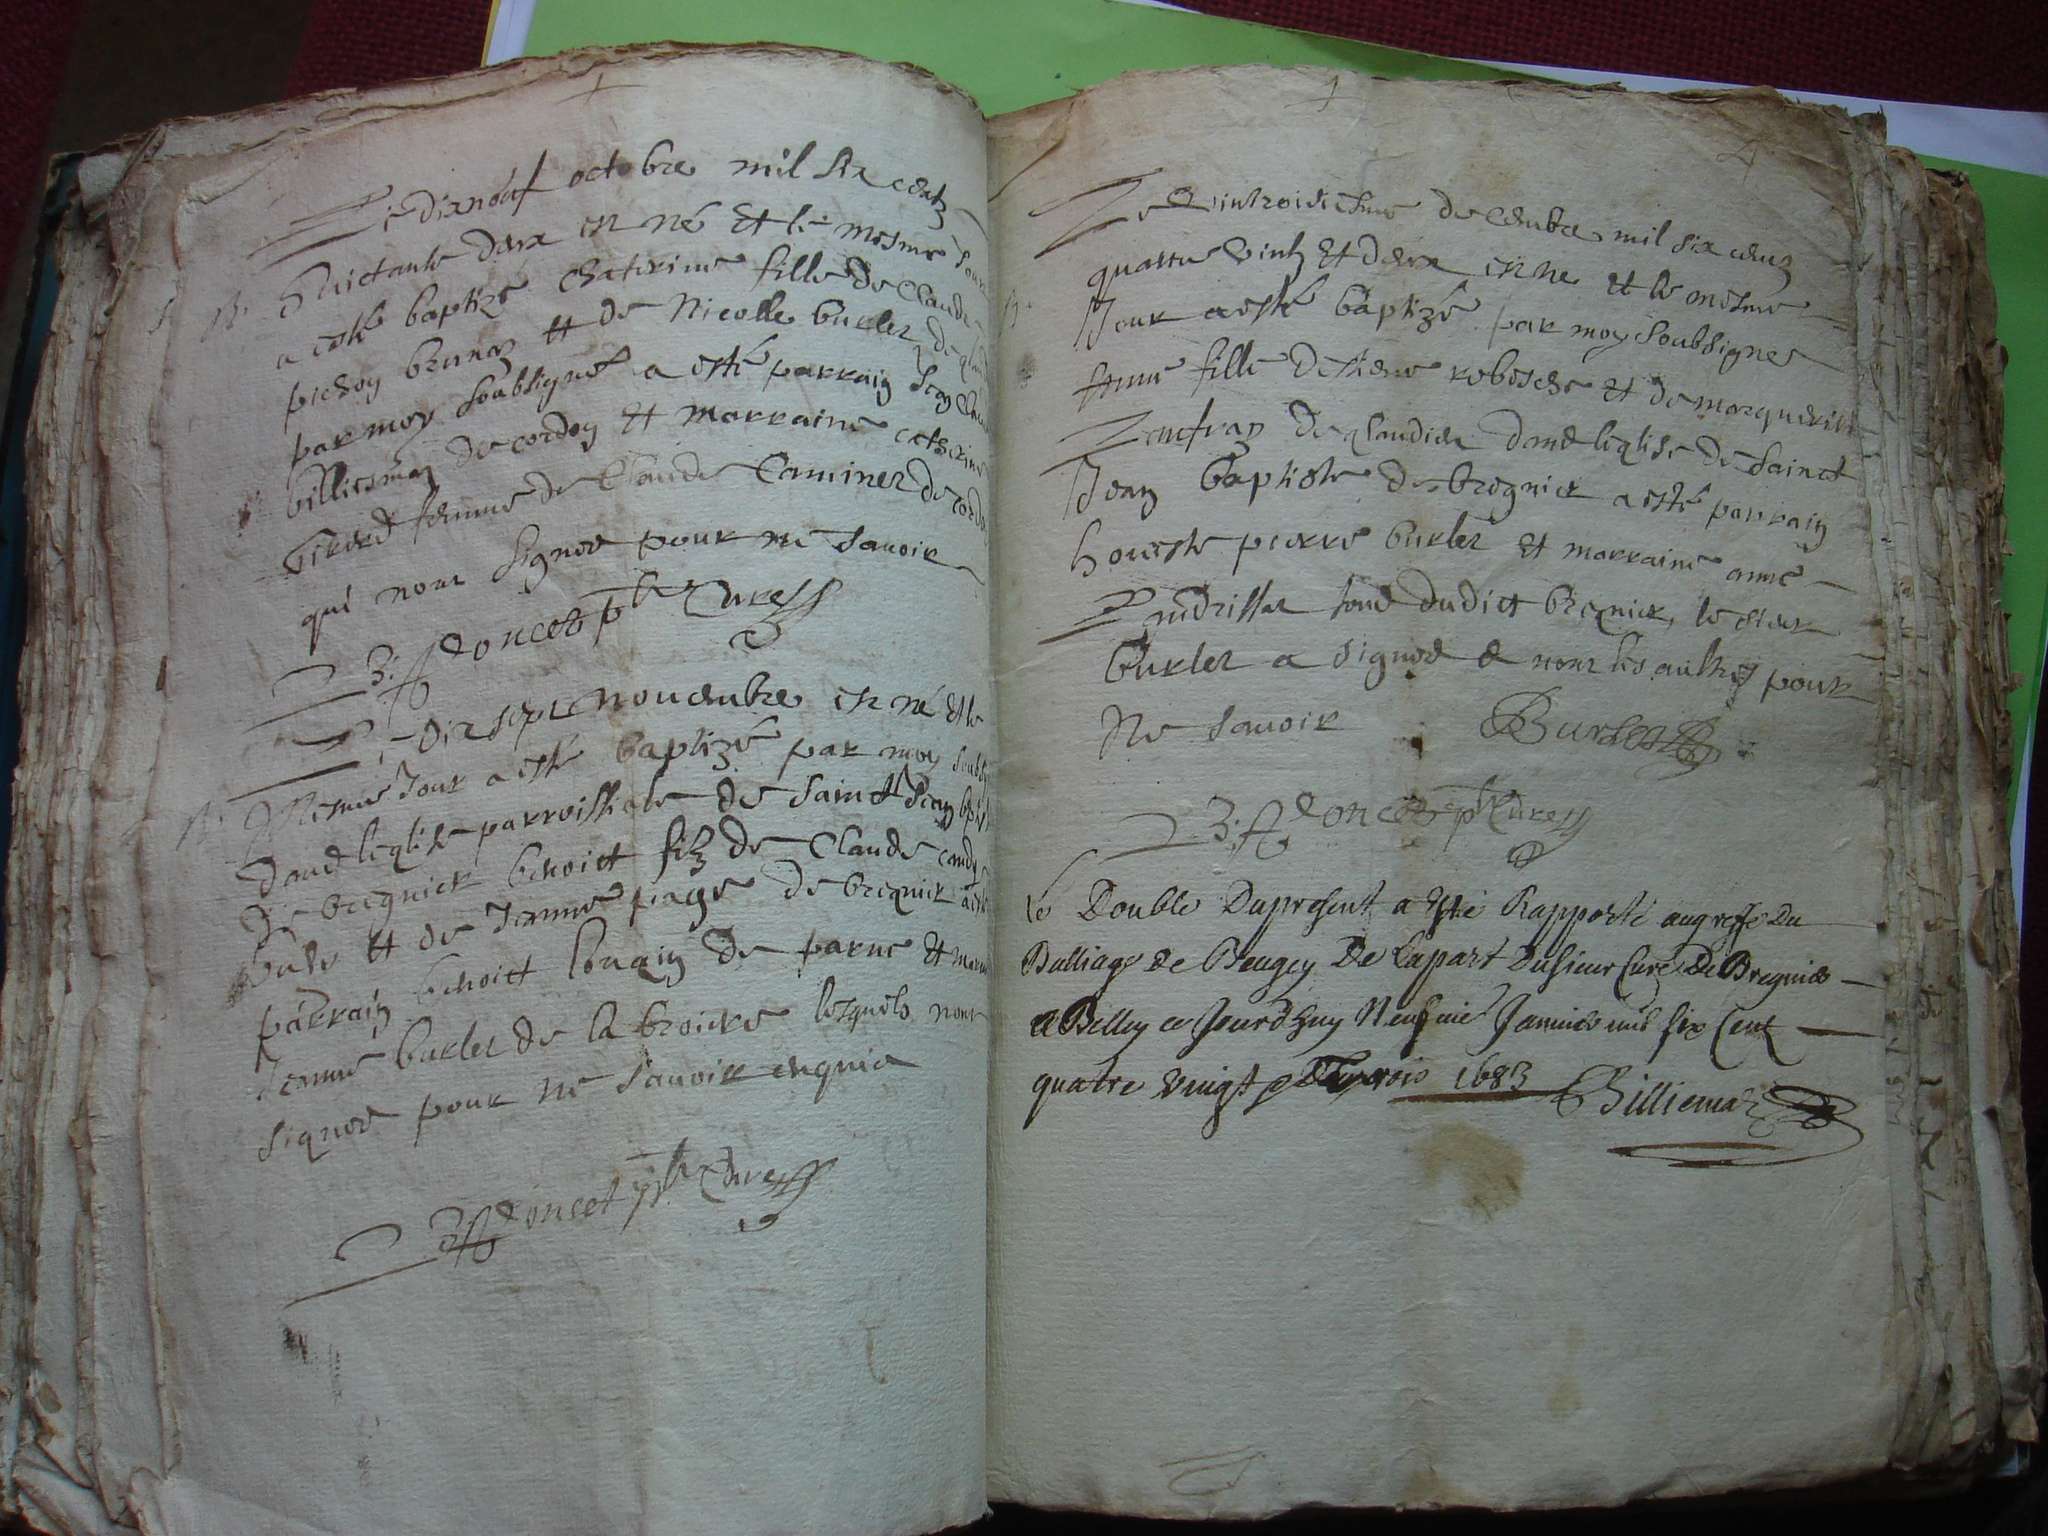 Le dixneuf octobre mil six centz
huictante deux est né et le mesme Jour
a esté baptizé chaterine fille de Claude
pichoy et de Nicolle burlet
par moy soubsigné a esté parrain Jean Claude
billiemaz de cordoy et marraine catherine
femme de Claude Caminet de cordoy
qui n'ont signes pour ne Sauoir
B: A doncet pbr Curé
Le dix sept nouembre est né et le
Mesme Jour a esté baptizé par moy soubs
dans l'eglise parroissiale de Sainct Jean bpt
de bregniek benoict filz de Claude
et de Jeanne de bregniek a esté
parrain benoict de parue et marr
Jeanne burlet de la broiere lesquels n'ont
signes pour ne Sauoir enquis
B A doncet pbr Curé
Le Vintroidiesme decembre mil six centz
quattre Vintz et deux est ne et le mesme
Jour a esté baptizé par moy soubsigne
fille destienne et de marguerite
de glandieu dans leglise de Sainct
Jean baptiste de bregniek a esté parrain
honeste pierre burlet et marraine anne
Andrillat tous dudict bregniek, le sieur
burlet a signes e n'ont les aultres pour
Ne Sauoir Burlet
B: A doncet pbr Curé
Le Double Dupresent a Esté Rapporté au greffe Du
Balliage de Beugey De la part Du sieur Curé De Bregnieu
a Belley ce Jourd'huy Neufme Januier mil six Cent
quatre vingt Trois 1683 Billiemaz